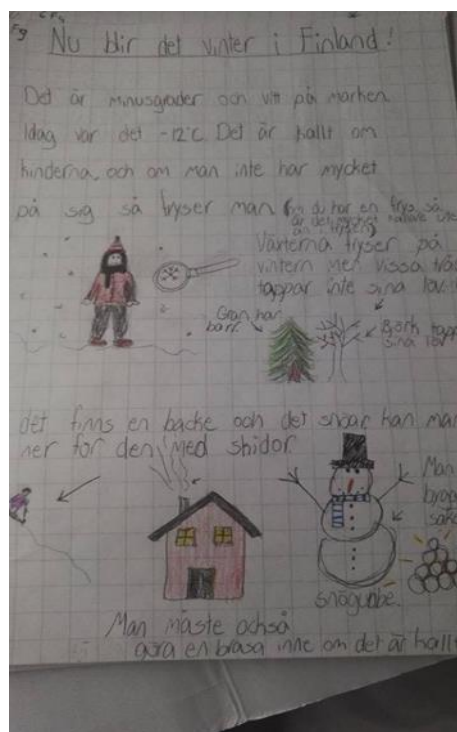 Nu blir det vinter i Finland!
Det är minusgrader och vitt på marken.
Idag var det -12°C. Det är kallt om
kinderna, och om man inte har mycket
på sig så fryser man (om du har en frys, så
är det mycket kallare ute
än i frysen)
Växterna fryser på
vintern men vissa trä
tappar inte sina löv
Gran har
barr.
Björk tapp
sina löv
det finns en backe och det snöar kan man
ner för den med skidor
Man
snögubbe.
Man måste också
göra en brasa inne om det är kallt